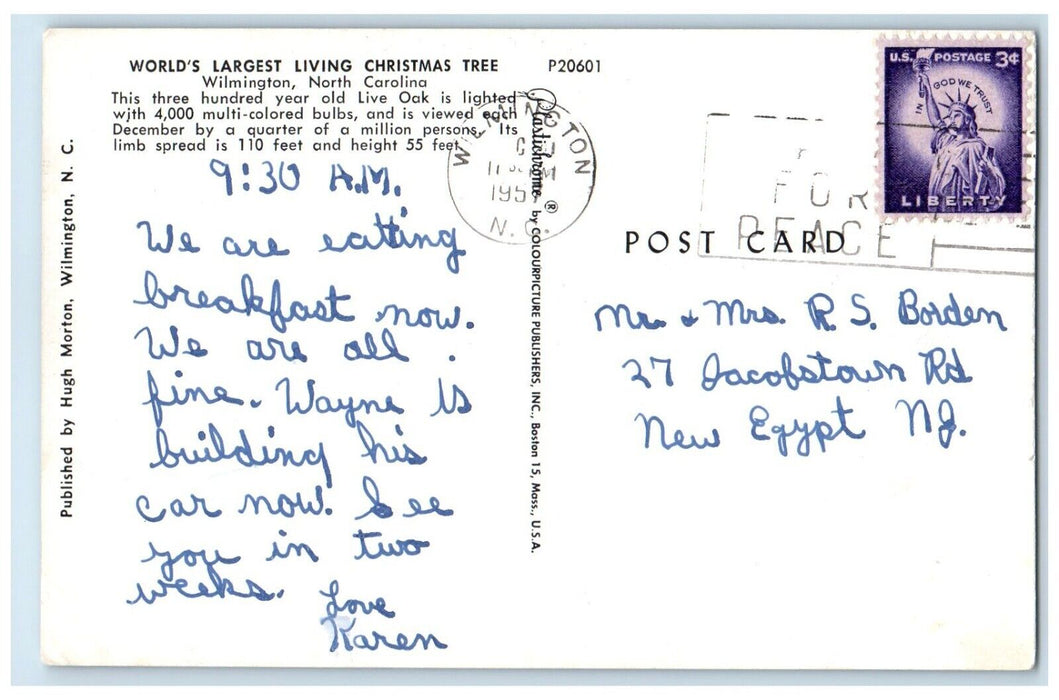 WORLD'S LARGEST LIVING CHRISTMAS TREE
Wilmington, North Carolina
This three hundred year old Live Oak is lighted
with 4,000 multi-colored bulbs, and is viewed each
December by a quarter of a million persons. Its
limb spread is 110 feet and height 55 feet.
P20601
9:30 A.M.
We are eatting
breakfast now.
We are all
fine. Wayne is
building his
car now. See
you in two
weeks.
Love
Karen
Published by Hugh Morton, Wilmington, N. C.
Plastichrome ® by COLOURPICTURE PUBLISHERS, INC., Boston 15, Mass., U.S.A.
WILMINGTON
N.C.
FOR
PEACE
U.S. POSTAGE 3¢
IN GOD WE TRUST
LIBERTY
POST CARD
Mr. & Mrs. R. S. Borden
27 Jacobstown Rd
New Egypt NJ.